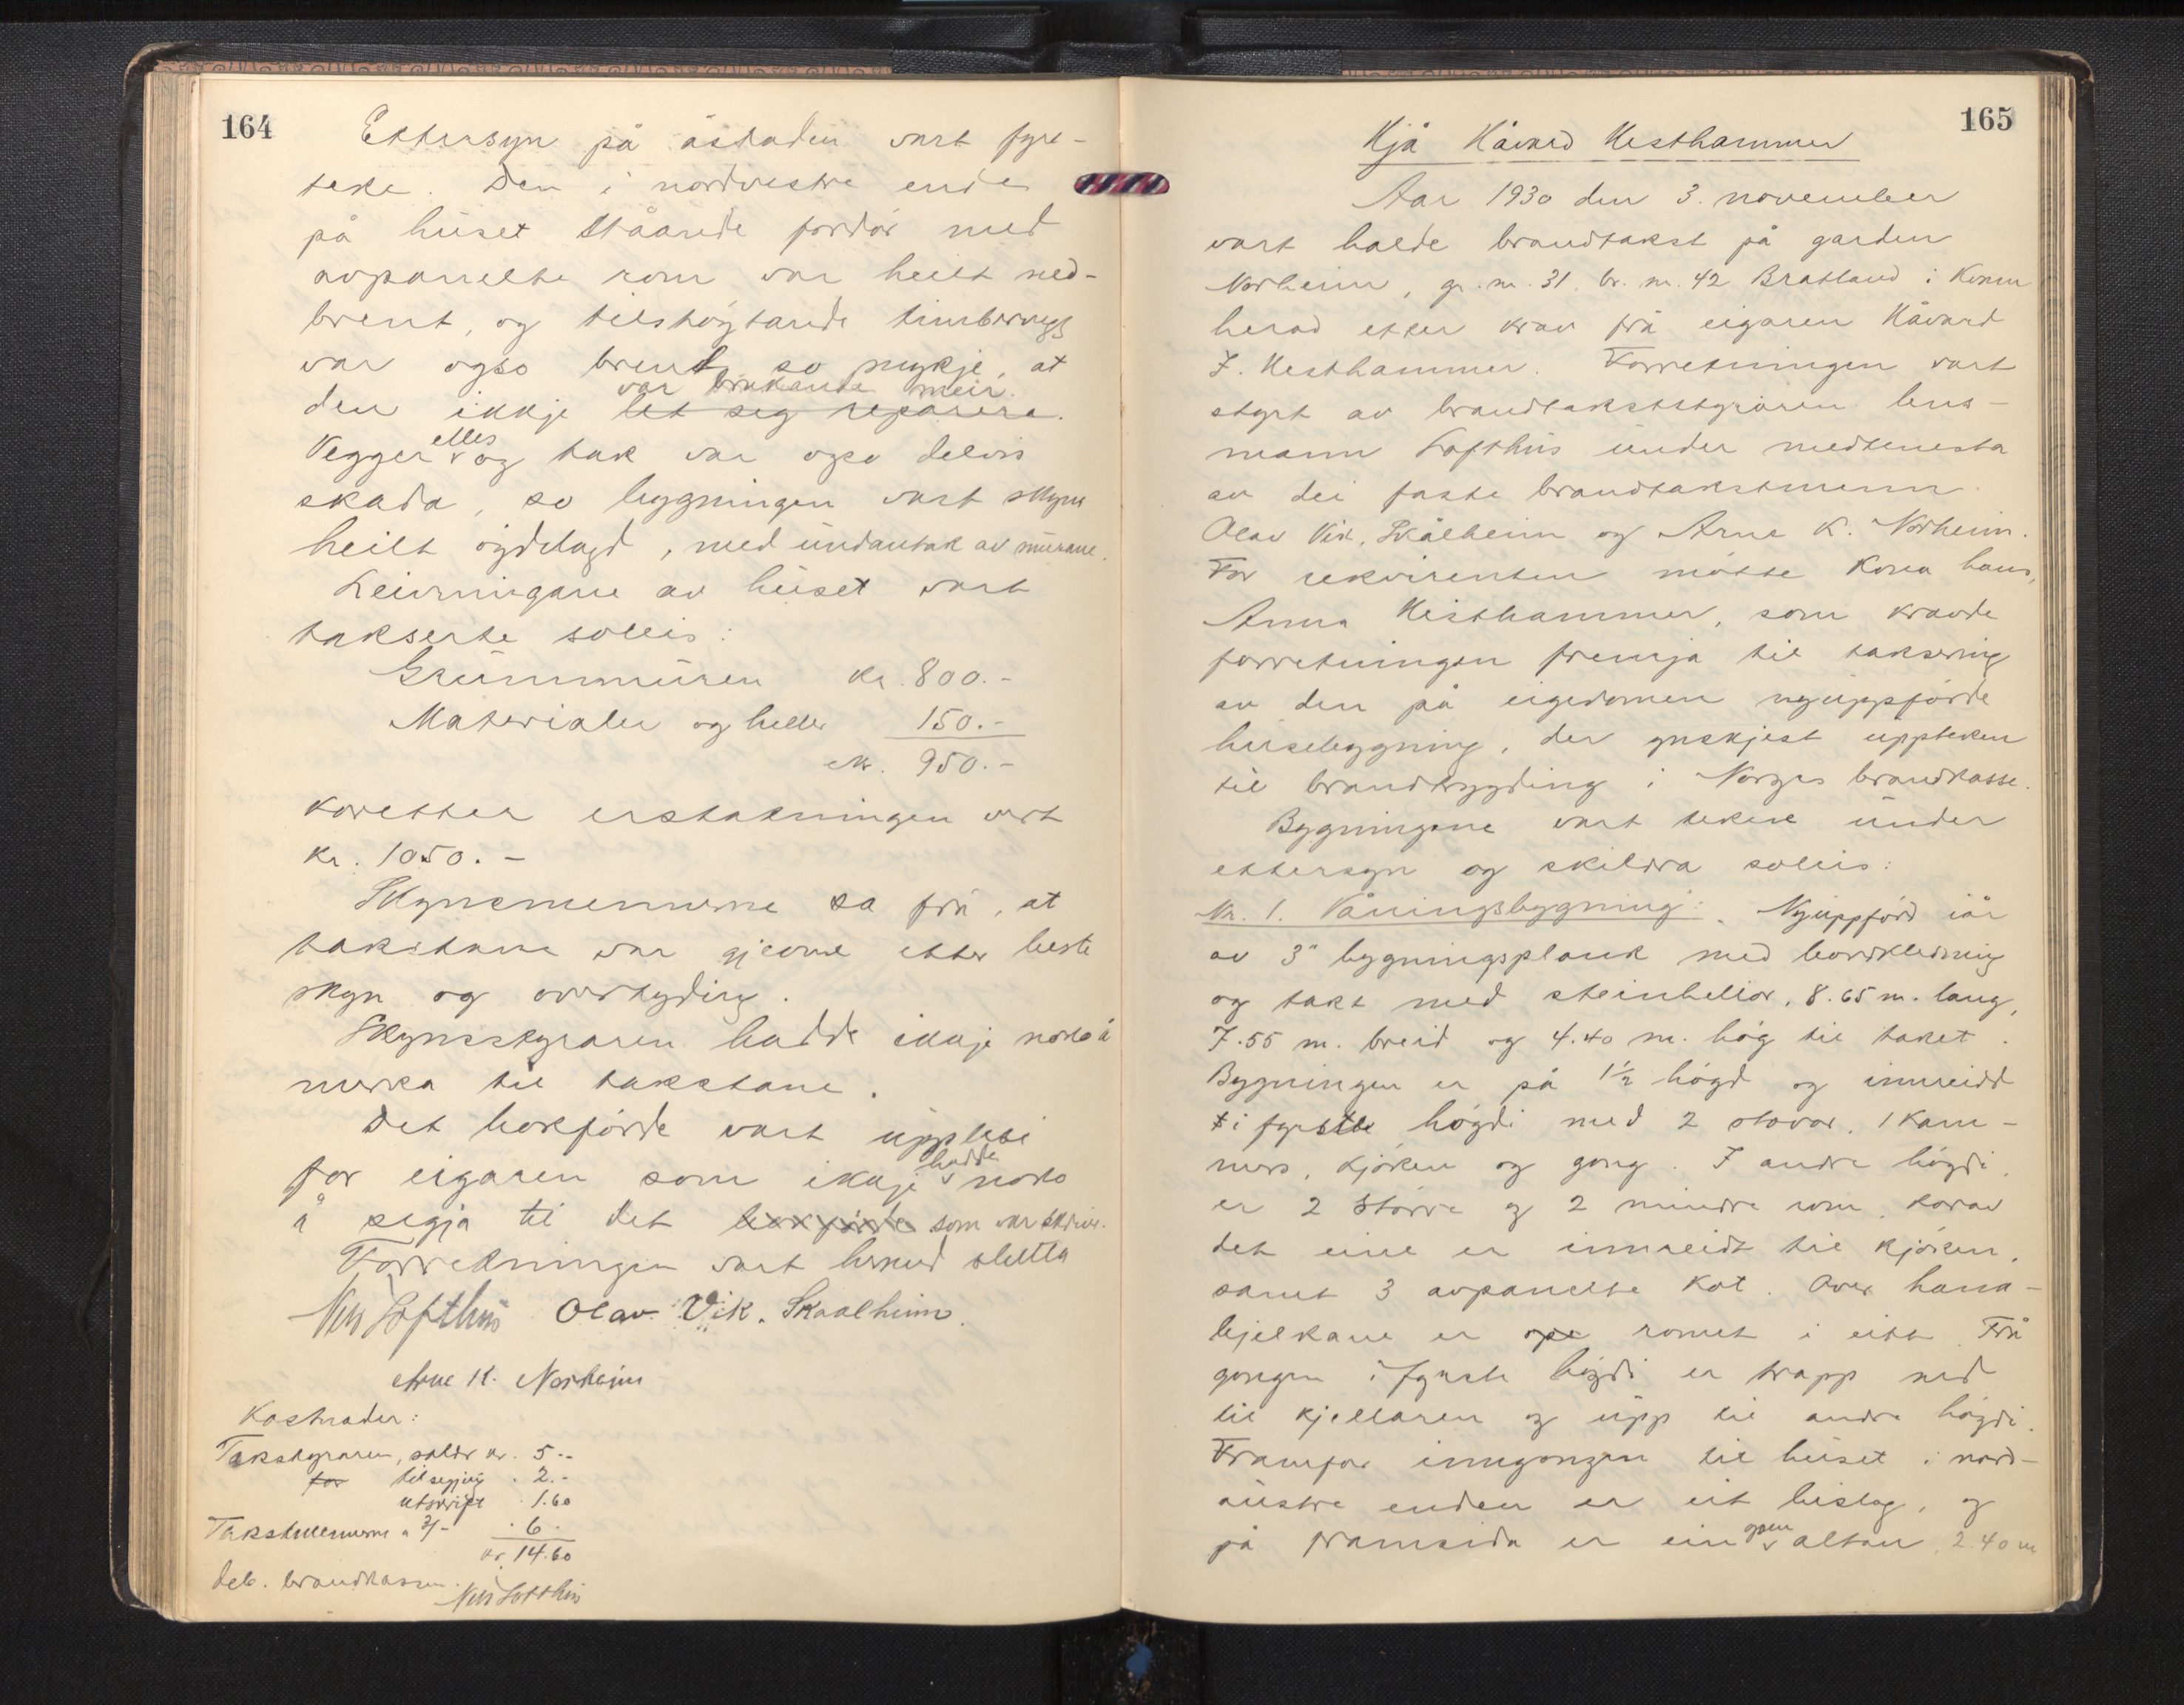 164
Ettersyn på åstaden vart fyre-
teke. Den i nordvestre enden
på huset ståande fordør med
avpanelte rom var heilt ned-
brent, og tilstøytande timbervegg
var ogso brent so mykje, at
var brukande meir.
den ikkje let seg reparera.
elles
Vegger og tak var ogso delvis
skada, so bygningen vart skyna
heilt øydelagd, med undantak av murane.
Leivningane av huset vart
takserte soleis:
Grunnmuren kr. 800.-
Materialer og heller 150.-
kr. 950.-
koretter erstatningen vert
kr. 1050.-
Skynsmennerne sa frå, at
takstane var gjevne etter beste
skyn og overtyding.
Skynsstyraren hadde ikkje noko å
merka til takstane.
Det bokførde vart upplese
hadde
for eigaren som ikkje noko
å segja til det bokførde som var skrive.
Forretningen vart hermed slutta
Nils Lofthus Olav Vik. Skaalheim.
Arne K. Norheim
Kostnader:
Takstyraren, salær kr. 5.-
for tilsegjing " 2.-
utskrift " 1.60
Takstmennerne a 3/- " 6.
kr. 14.60
Deb. brandkassen.
Nils Lofthus
165
Hjå Håvard Hesthammer
Aar 1930 den 3. november
vart halde brandtakst på garden
Norheim, gr. nr. 31. br. nr. 42 Bratland i Kvam
herad etter krav frå eigaren Håvard
J. Hesthammer. Forretningen vart
styrt av brandtakststyraren lens-
mann Lofthus under medtenesta
av dei faste brandtakstmenn
Olav Vik, Skålheim og Arne K. Norheim.
For rekvirenten møtte kona hans,
Anna Hesthammer, som kravde
forretningen fremja til taksering
av den på eigedomen nyuppførde
husebygning, der ynskjest uppteken
til brandtrygding i Norges brandkasse.
Bygningane vart tekne under
ettersyn og skildra soleis:
Nr. 1. Våningsbygning: Nyuppførd iår
av 3" bygningsplank med bordkledning
og takt med steinhellor, 8.65 m. lang,
7.55 m. breid og 4.40 m. høg til taket.
Bygningen er på 1½ høgd og innreidd
i fyrste høgdi med 2 stovor, 1 kam-
mers, kjøken og gong. I andre høgdi
er 2 større og 2 mindre rom, korav
det eine er innreidt til kjøken,
samt 3 avpanelte kot. Over hana-
bjelkane er ope romet i eitt. Frå
gongen i fyrste høgdi er trapp ned
til kjellaren og upp til andre høgdi.
Framfor inngongen til huset i nord-
austre enden er eit bislag, og
open
på framsida er ein altan, 2.40 m